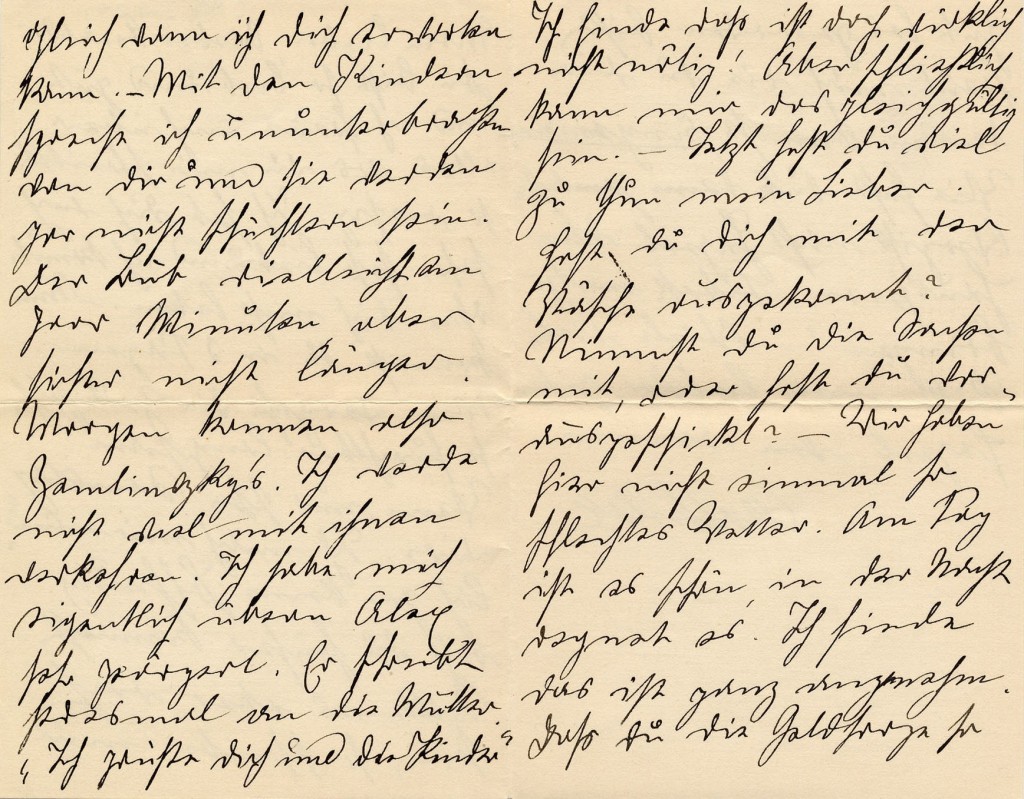 gleich wann ich dich erwarten
kann. – Mit den Kindern
spreche ich ununterbrochen
von dir und sie werden
gar nicht schüchtern sein.
Der Bub vielleicht ein
paar Minuten aber
sicher nicht länger.
Morgen kommen also
Zemlinszky's. Ich werde
nicht viel mit ihnen
verkehren. Ich habe mich
eigentlich übern Alex
sehr geärgert. Er schreibt
jedesmal an die Mutter.
„Ich grüße dich und die Kinder"
Ich finde dass ist doch wirklich
nicht nötig! Aber schließlich
kann mir das gleichgültig
sein. – Jetzt hast du viel
zu thun mein Lieber.
Hast du dich mit der
Wäsche ausgekannt?
Nimmst du die Sachen
mit, oder hast du vor-
ausgeschickt? – Wir haben
hier nicht einmal so
schlechtes Wetter. Am Tag
ist es schön, in der Nacht
regnet es. Ich finde
das ist ganz angenehm.
Dass du die Geldsorge so